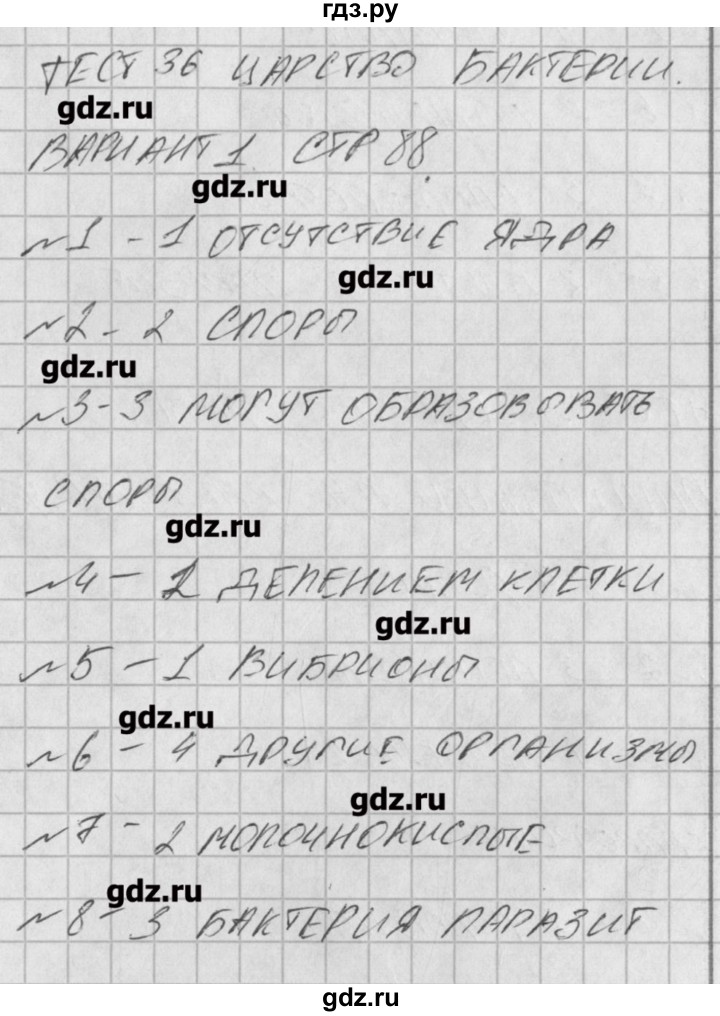 гдз.ру
ТЕСТ 36 ЦАРСТВО БАКТЕРИИ.
gdz.ru
ВАРИАНТ 1. СТР 88.
gdz.ru
№1 - 1 ОТСУТСТВИЕ ЯДРА
gdz.ru
№2 - 2 СПОРЫ
gdz.ru
№3-3 МОГУТ ОБРАЗОВЫВАТЬ
СПОРЫ
gdz.ru
№4 - 2 ДЕЛЕНИЕМ КЛЕТКИ
gdz.ru
№5 - 1 ВИБРИОНЫ
gdz.ru
№6 - 4 ДРУГИЕ ОРГАНИЗМЫ
gdz.ru
№7 - 2 МОЛОЧНОКИСЛЫЕ
gdz.ru
№8 - 3 БАКТЕРИЯ ПАРАЗИТ
gdz.ru